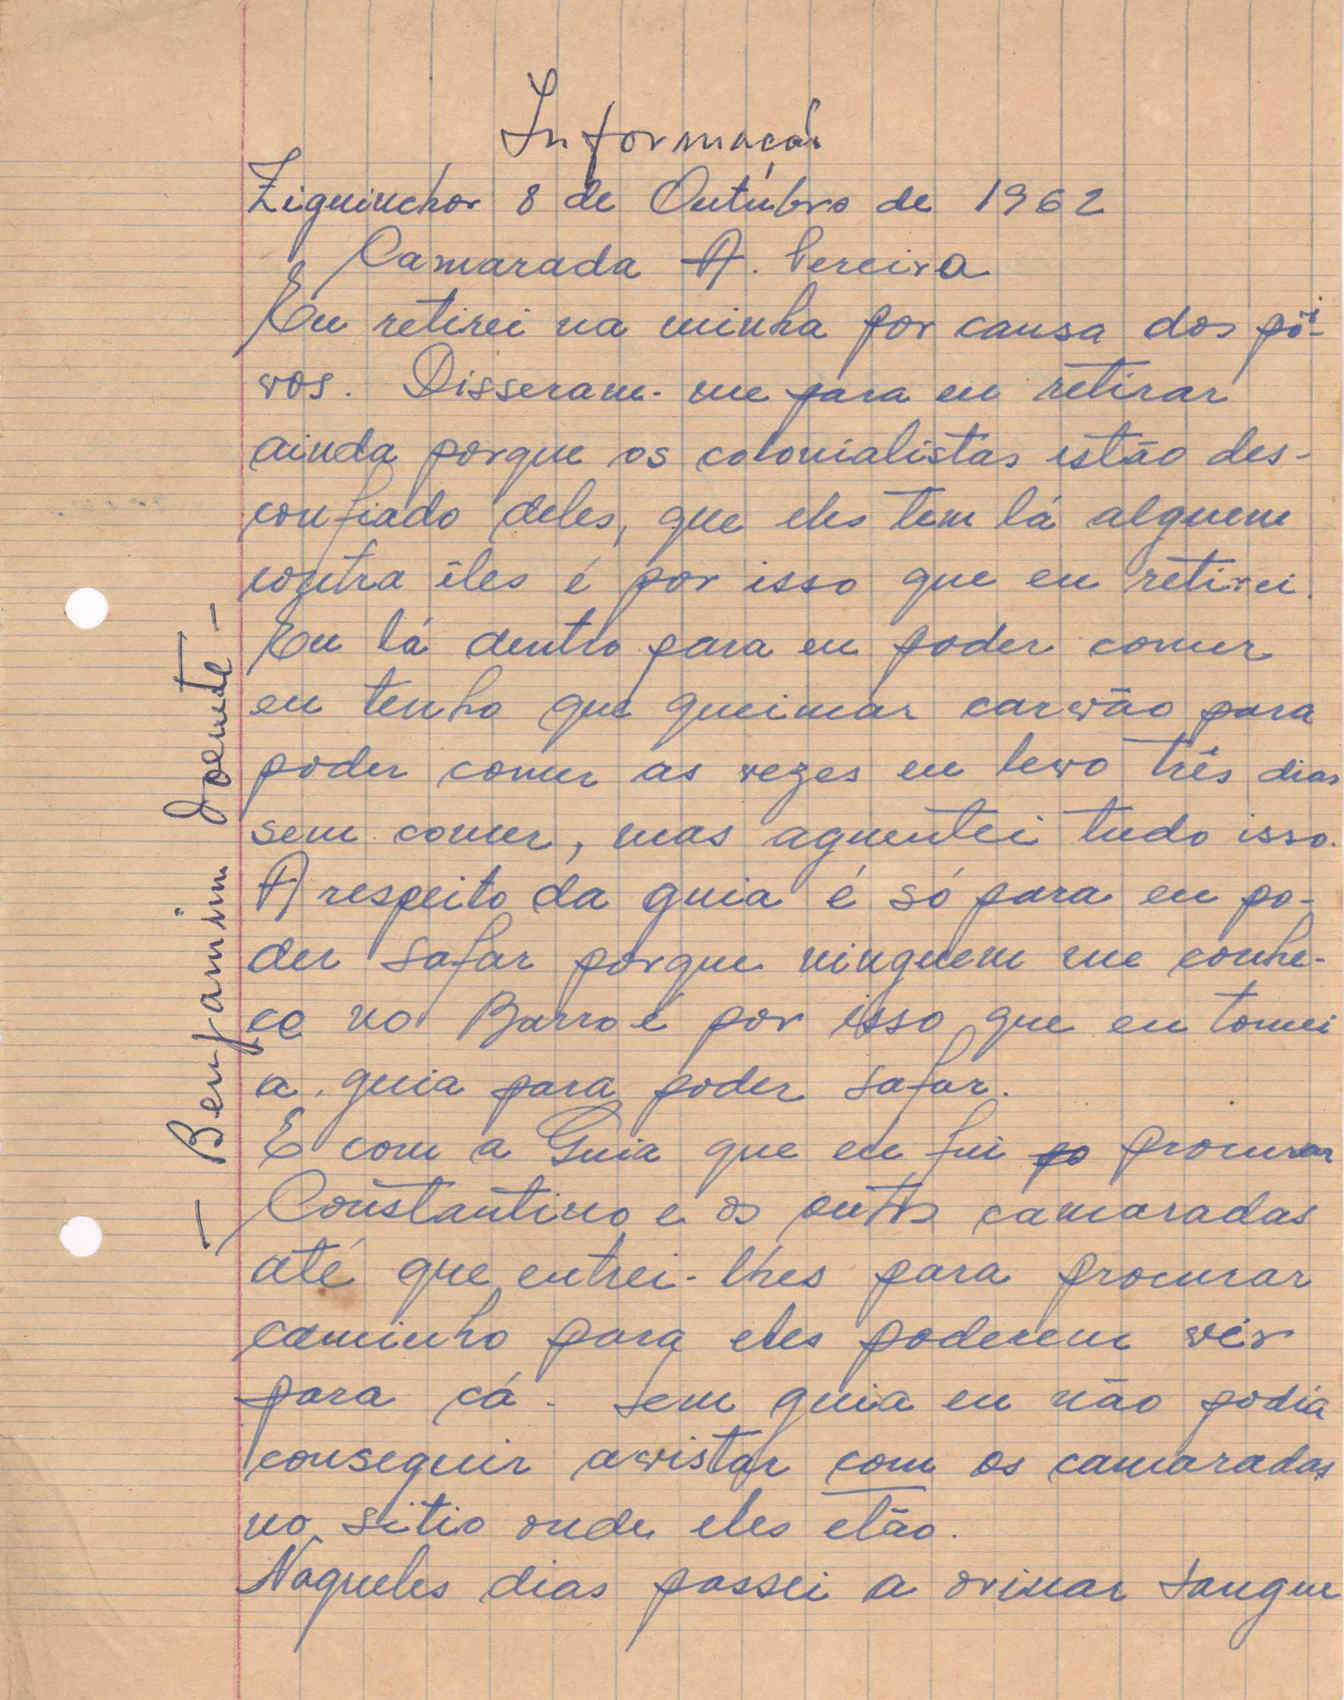 Informação
Ziguinchor 8 de Outúbro de 1962
Camarada A. Pereira
Eu retirei na minha por causa dos pô-
vos. Disseram-me para eu retirar
ainda porque os colonialistas estão des-
confiado deles, que eles tem lá alguem
contra êles é por isso que eu retirei.
Eu lá dentro para eu poder comer
eu tenho que queimar carvão para
poder comer as vezes eu levo três dias
sem comer, mas aguentei tudo isso.
A respeito da guia é só para eu po-
der safar porque ninguem me conhe-
ce no Barro é por isso que eu tomei
a guia para poder safar.
E com a Guia que eu fui procurar
Constantino e os outros camaradas
até que entrei-lhes para procurar
caminho para eles poderem vêr
para cá. Sem guia eu não podia
conseguir avistar com os camaradas
no sitio onde eles etão.
Naqueles dias passei a orinar sangue
- Benjamim doente -